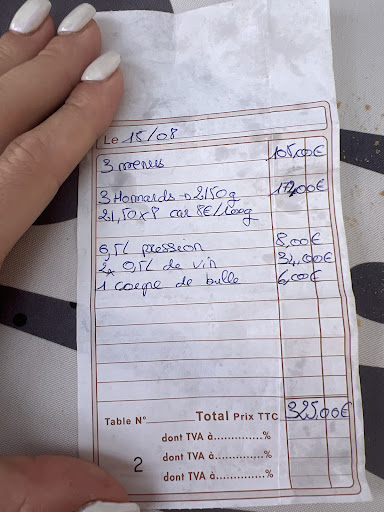 Le 15/08
3 menus 105,00€
3 Homards → 2150g 172,00€
21,50x8 car 8€/100g
0,5L pression 8,00€
2x 0,5L de vin 34,00€
1 coupe de bulle 6,00€
Table N° Total Prix TTC 325,00€
dont TVA à..............%
2 dont TVA à..............%
dont TVA à..............%